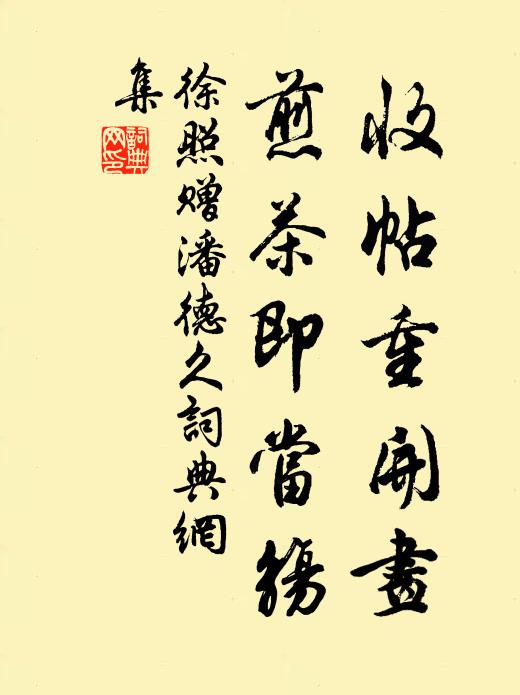 收帖重開畫
煎茶即當觴
徐照贈潘德久詞典網
集
詞典網印